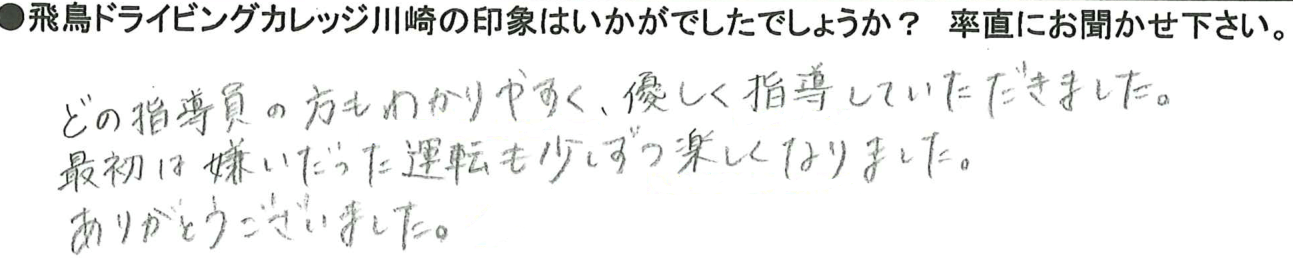 ●飛鳥ドライビングカレッジ川崎の印象はいかがでしたでしょうか？ 率直にお聞かせ下さい。
どの指導員の方もわかりやすく、優しく指導していただきました。
最初は嫌いだった運転も少しずつ楽しくなりました。
ありがとうございました。